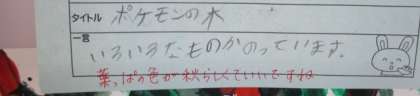 タイトル ポケモンの木
一言
いろいろなものがのっています。
葉っぱの色が秋らしくていいですね